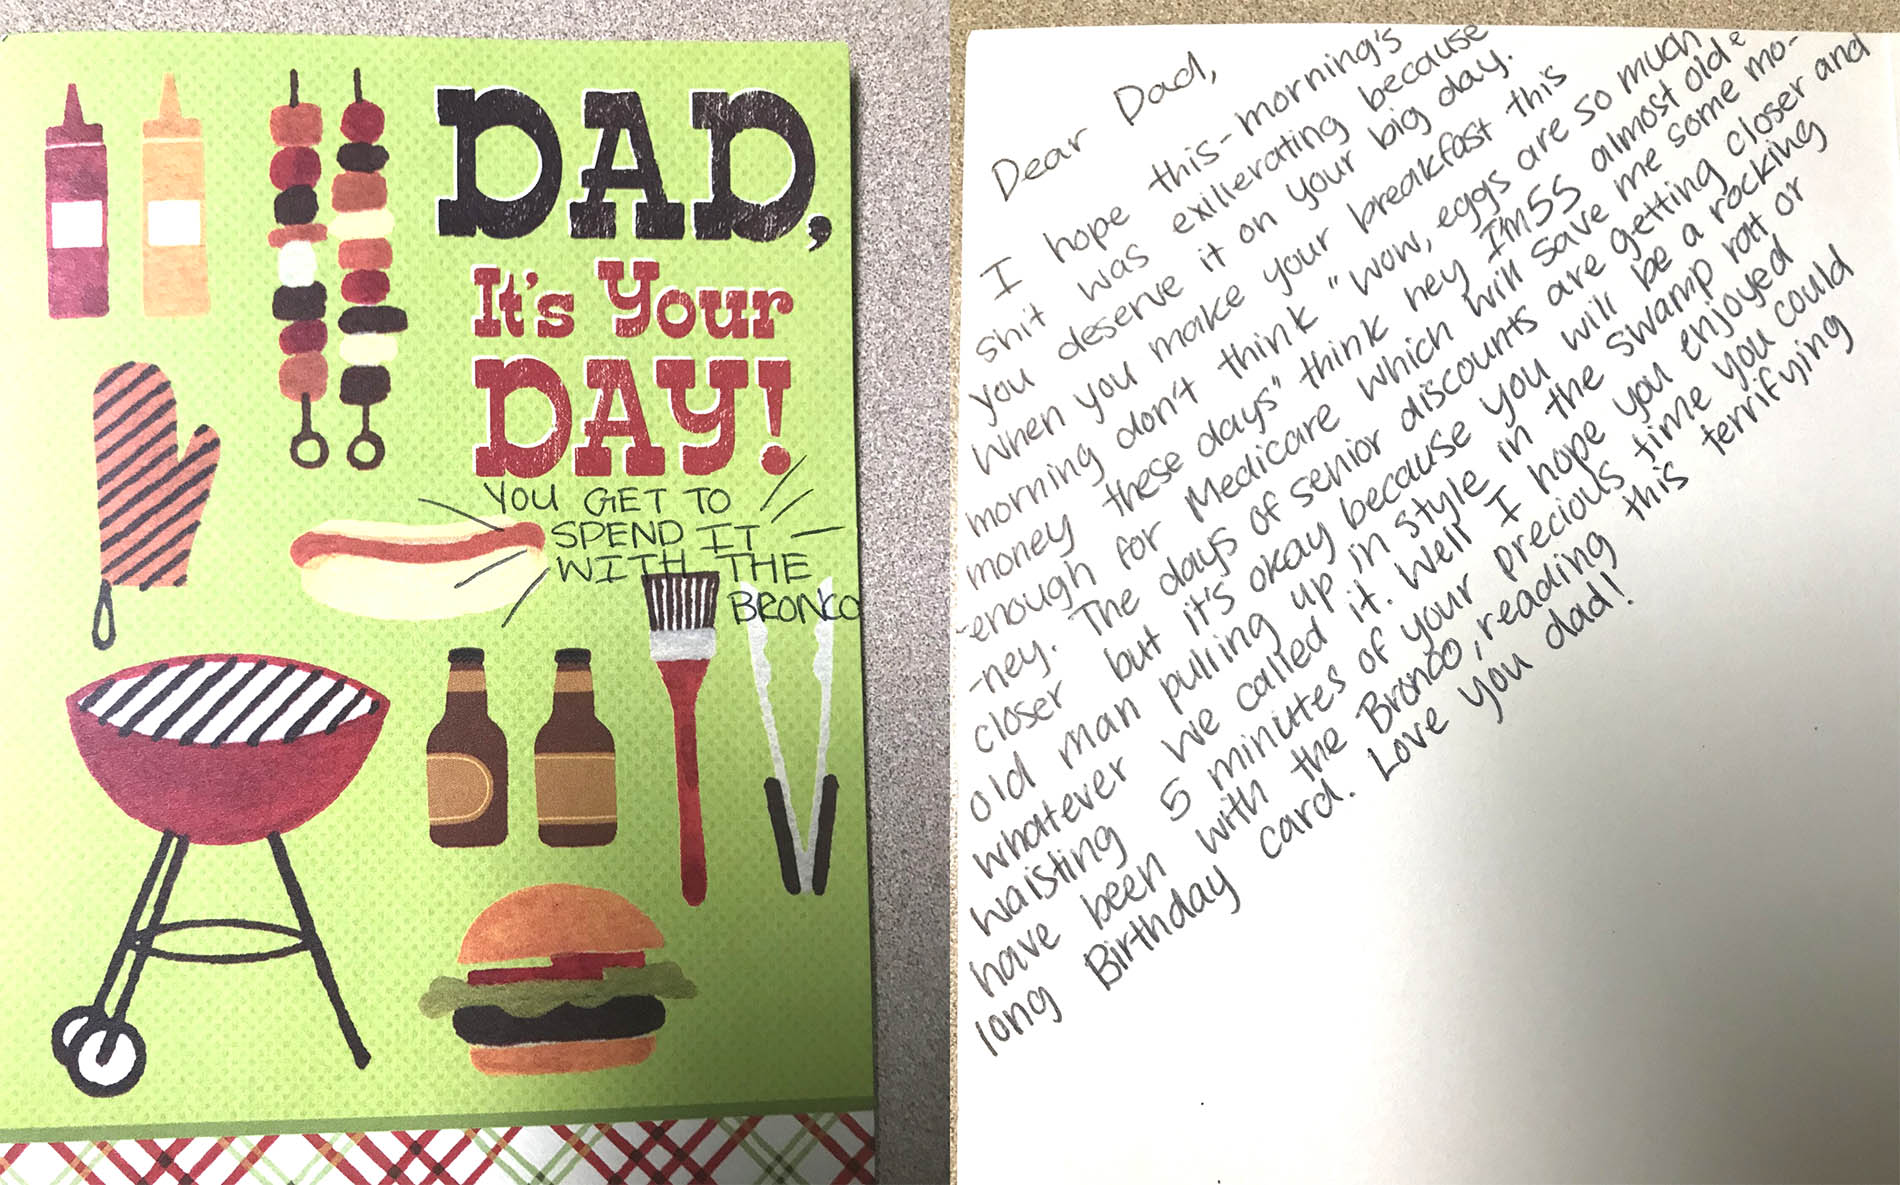 DAD,
It's Your
DAY!
YOU GET TO
SPEND IT
WITH THE
BRONCO
Dear Dad,
I hope this-morning's
shit was exillerating because
you deserve it on your big day.
When you make your breakfast this
morning don't think "wow, eggs are so much
money these days" think hey I'm 55 almost old-
-enough for Medicare which will save me some mo-
-ney. The days of senior discounts are getting closer and
closer but it's okay because you will be a rocking
old man pulling up in style in the swamp rat or
whatever we called it. Well I hope you enjoyed
waisting 5 minutes of your precious time you could
have been with the Bronco, reading this terrifying
long Birthday card. Love you dad!